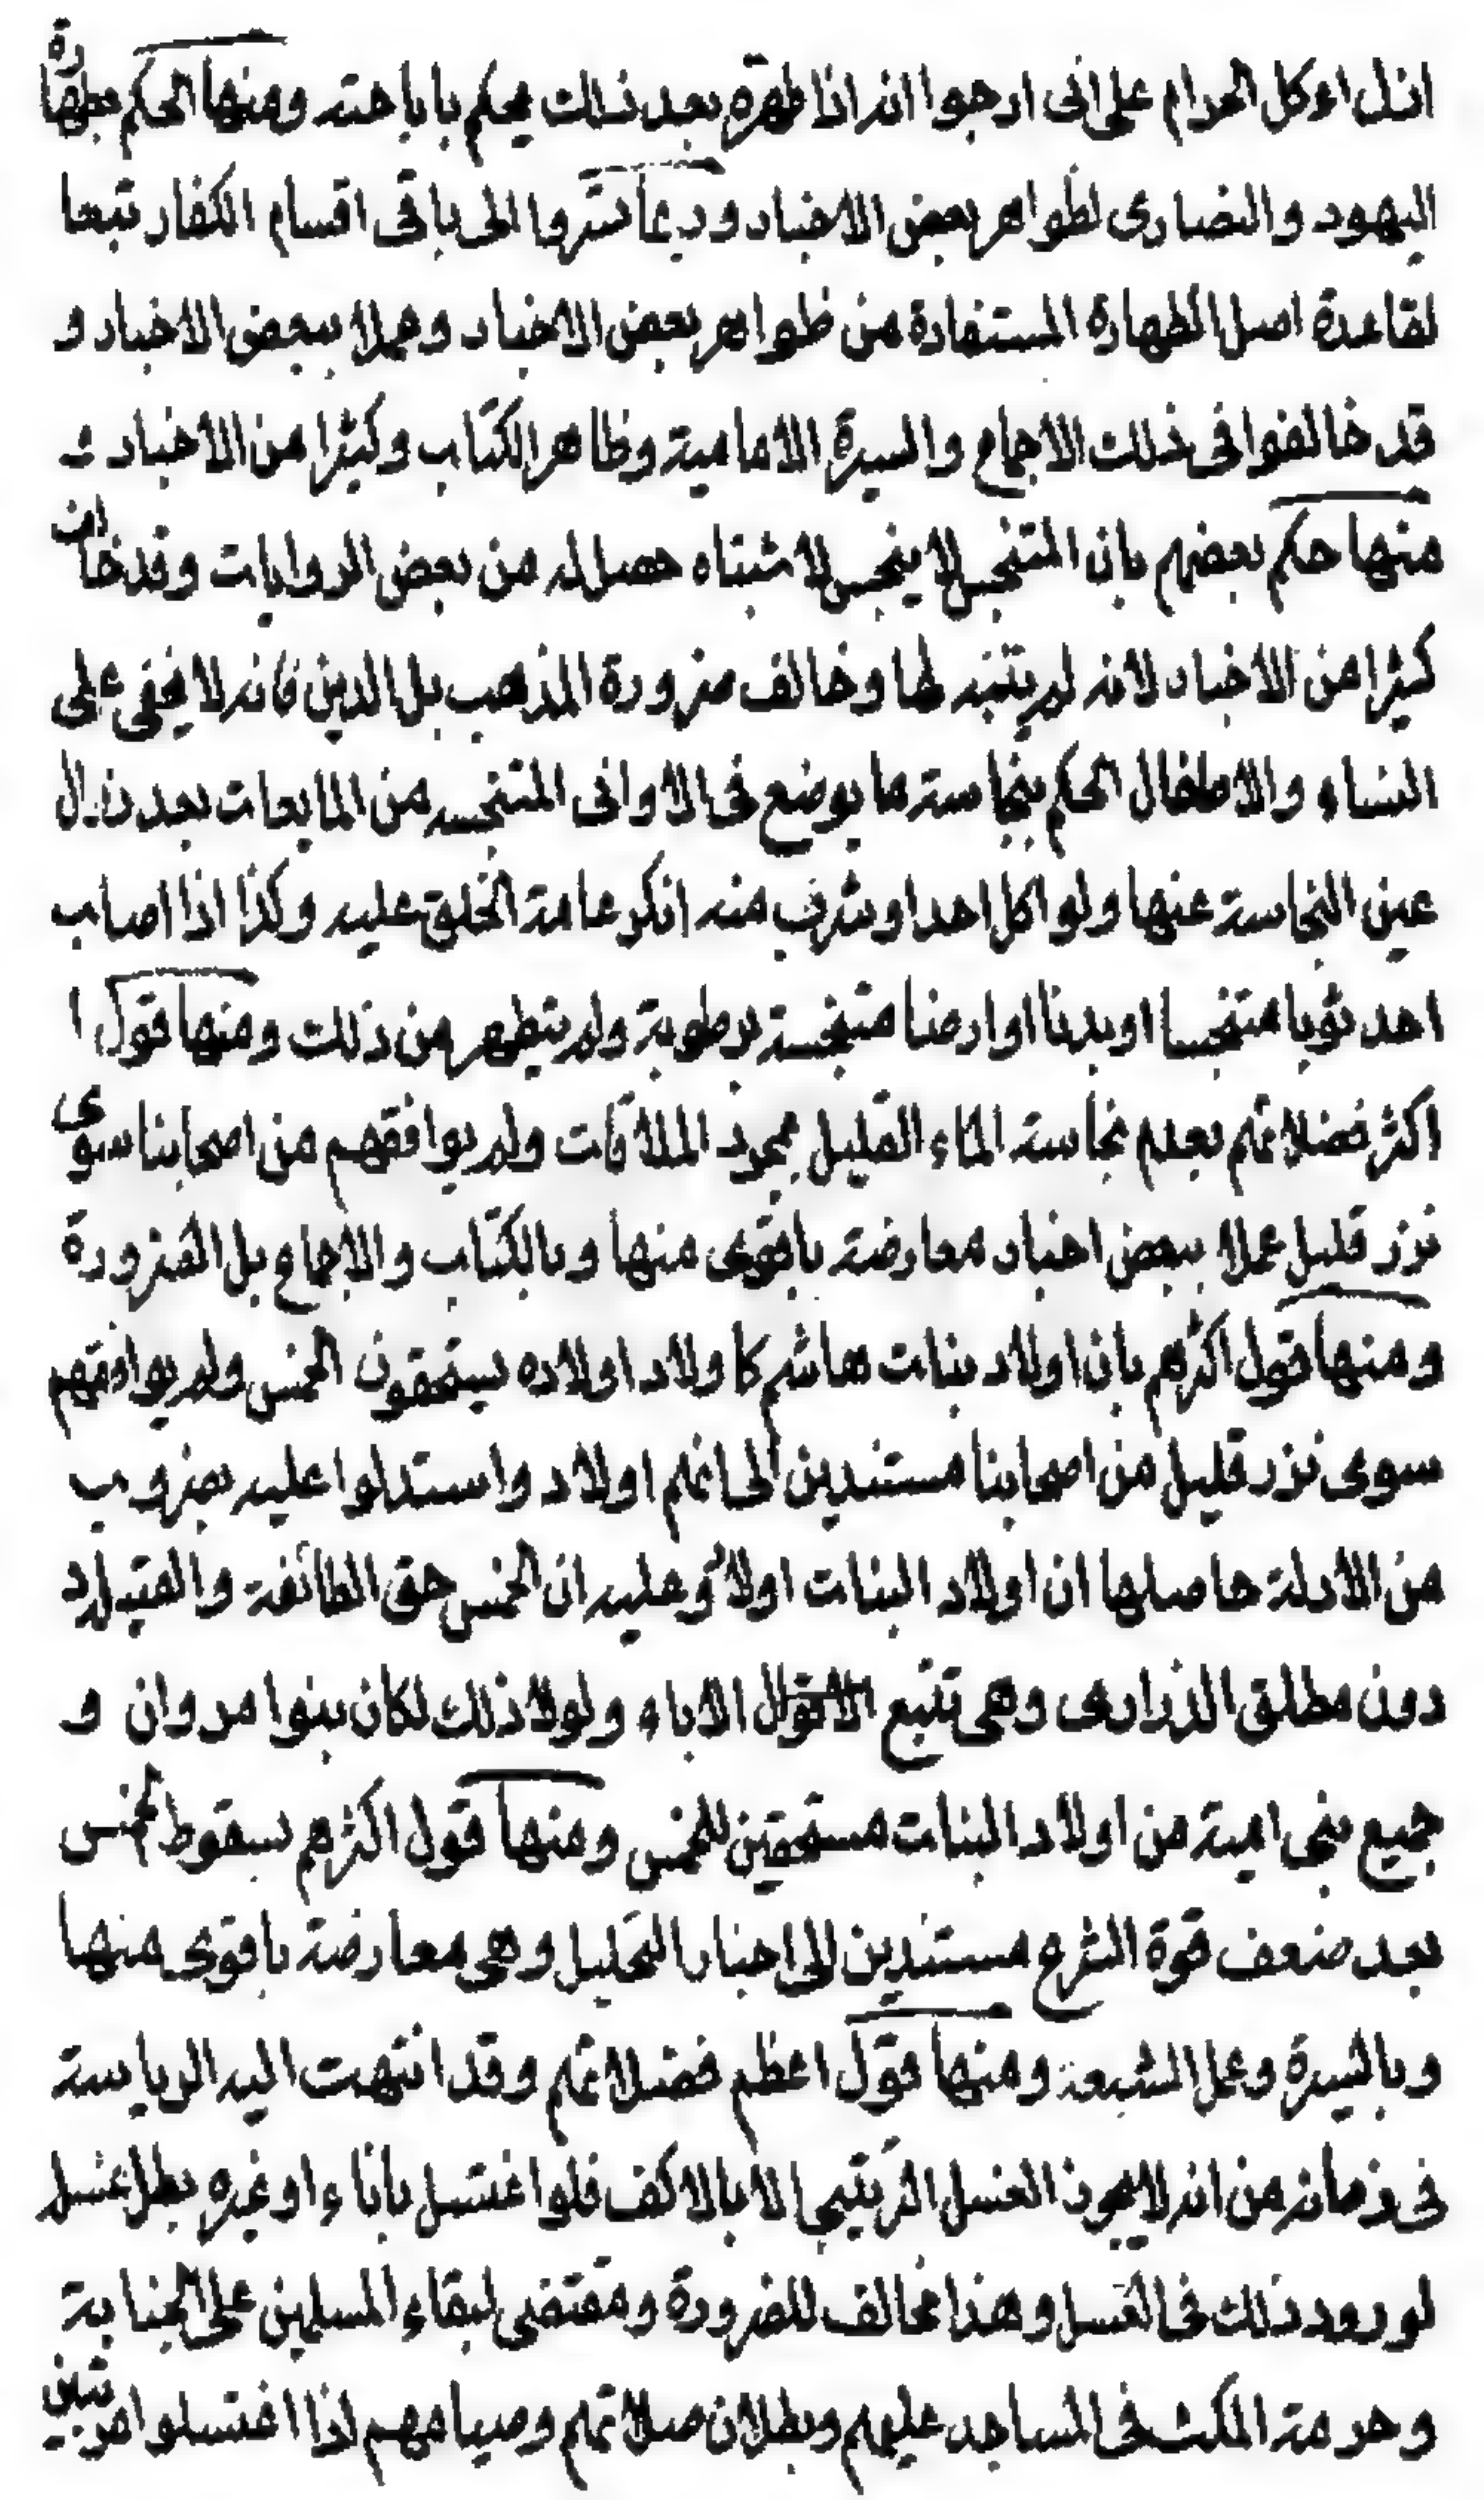 انك اءكل الحرام على انى ارجوا انه اذا ظهره بعد ذلك يحكم باباحته ومنها الحكم بطهارة
اليهود والنصارى لظواهر بعض الاخبار وربما تستروا الى باقى اقسام الكفار تبعا
لقاعدة اصل الطهارة المستفادة من ظواهر بعض الاخبار وعملا ببعض الاخبار و
قد خالفوا فى ذلك الاجماع والسيرة الامامية وظاهر الكتاب وكثيرا من الاخبار و
منها حكم بعضهم بان المتنجس لا ينجس لاشتباه حصل له من بعض الروايات وقد خالف
كثيرا من الاخبار لانه لم يتنبه لها وخالف ضرورة المذهب بل الدين فانه لا يخفى على
النساء والاطفال الحكم بنجاسة ما يوضع فى الاوانى المتنجسه من المايعات بعد زوال
عين النجاسة عنها ولو اكل احد او شرب منه انكر عامة الخلق عليه وكذا اذا اصاب
احد ثوبا متنجسا او بدنا او ارضا متنجسة برطوبة ولم يتطهر من ذلك ومنها قول ا
اكثر فضلائهم بعدم نجاسة الماء القليل بمجرد الملاقات ولم يوافقهم من اصحابنا سوى
نزر قليل عملا ببعض اخبار معارضة باقوى منها وبالكتاب والاجماع بل الضرورة
ومنها قول اكثرهم بان اولاد بنات هاشم كاولاد اولاده يستحقون الخمس ولم يوافقهم
سوى نزر قليل من اصحابنا مستندين الى انهم اولاد واستدلوا عليه بضروب
من الادلة حاصلها ان اولاد البنات اولاد وعليه ان الخمس حق الطائفة والقبيلة
دون مطلق الذرارى وهى تتبع الاقوال الاباء ولولا ذلك لكان بنوا مروان و
جميع بنى امية من اولاد البنات مستحقين للخمس ومنها قول اكثرهم بسقوط الخمس
بعد ضعف قوة الشرع مستندين الى اخبار التحليل وهى معارضة باقوى منها
وبالسيرة وعمل الشيعة ومنها قول اعظم فضلائهم وقد انتهت اليه الرياسة
فى زمانه من انه لا يجوز الغسل الترتيبى الا بالاكف فلو اغتسل باناء او غيره بطل غسله
لورود ذلك فى الغسل وهذا مخالف للضرورة ومقتضى لبقاء المسلمين على الجنابة
وحرمة المكث فى المساجد عليهم وبطلان صلاتهم وصيامهم اذا اغتسلوا مرتبين